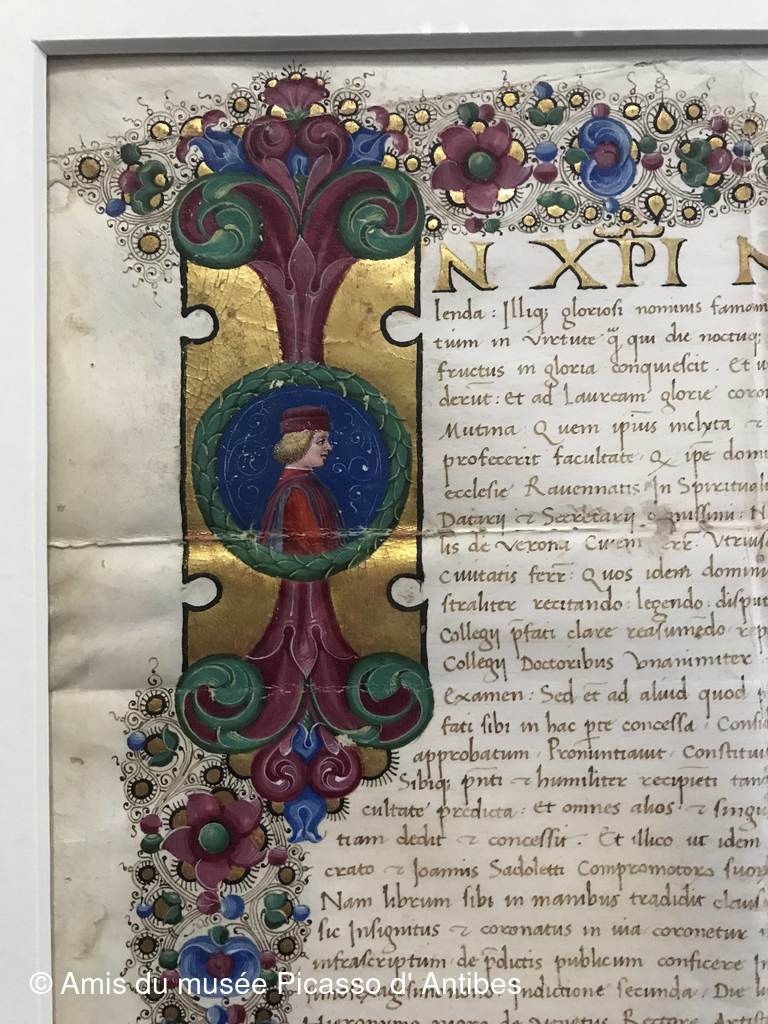 IN XP̄I N
lenda : Illiq; gloriosi nominis famam
tium in virtute q̄ qui die noctuq;
fructus in gloria conquiescit . Et u
derūt : et ad Lauream glorie coro
Mutina . Quem ipsius inclyta
profecerit facultate . ipe domi
ecclesie Ravennatis In Spirituali
Datarij Secretarij
lis de verona Civem ferr̄ . Utrius
Civitatis ferr̄ : Quos idem domini
straliter recitando : legendo : disput
Collegij p̄fati clare reasumēdo rep
Collegij Doctoribus Unanimiter
Examen : Sed et ad aliud quod
fati sibi in hac p̄te concessa . Consi
approbatum . Pronūntiavit . Constitui
Sibiq; p̄nti humiliter recipiēti tan
cultate predicta : Et omnes alios singu
tiam dedit concessit . Et illico ut idem
crato Ioannis Sadoletti Compromotor suor
Nam librum sibi in manibus tradidit claus
sic Insignitus coronatus in via coronetur
infrascriptum de p̄dictis publicum conficere In
Indictione secunda . Die
de venetus Rectore Artist
© Amis du musée Picasso d' Antibes